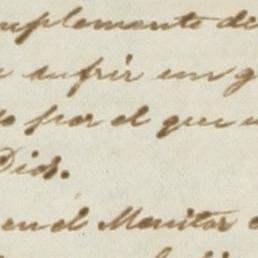 suplemento di
sufrir un g
por el que
Dios.
en el Monitor